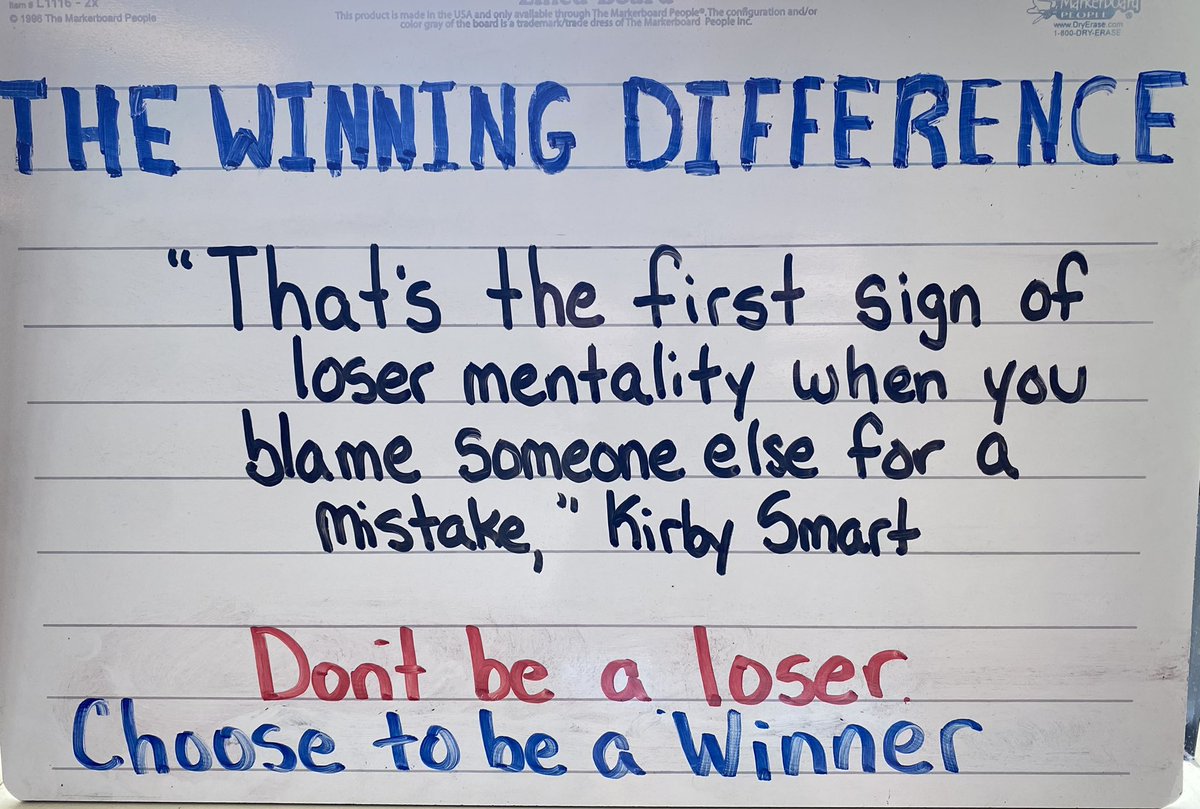 Item # L1116 - 2x
© 1996 The Markerboard People
Lined Board
This product is made in the USA and only available through The Markerboard People®. The configuration and/or
color gray of the board is a trademark/trade dress of The Markerboard People Inc.
Markerboard
PEOPLE
www.DryErase.com
1-800-DRY-ERASE
THE WINNING DIFFERENCE
"That's the first sign of
loser mentality when you
blame someone else for a
mistake," Kirby Smart
Don't be a loser.
Choose to be a Winner